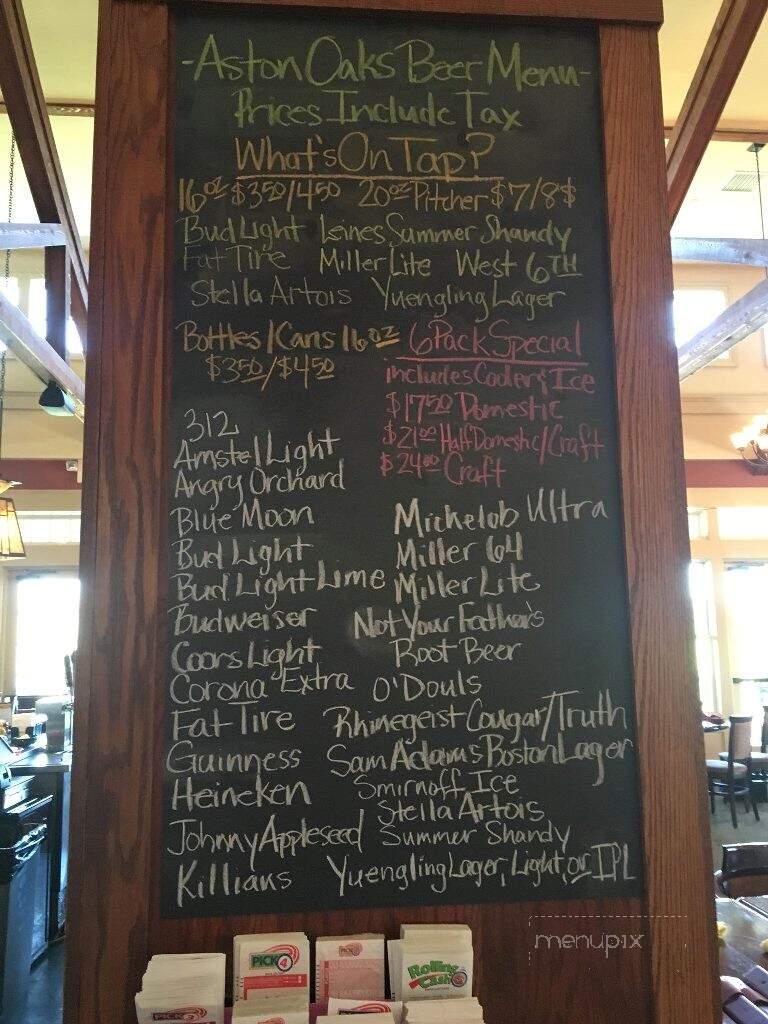 -Aston Oaks Beer Menu-
Prices Include Tax
What's On Tap?
16oz $3.50/4.50 20oz Pitcher $7/8$
Bud Light Leines Summer Shandy
Fat Tire Miller Lite West 6TH
Stella Artois Yuengling Lager
Bottles/Cans 16oz
$3.50/$4.50
6 Pack Special
includes Cooler & Ice
$17.50 Domestic
$21.00 Half Domestic/Craft
$24.00 Craft
312
Amstel Light
Angry Orchard
Blue Moon
Bud Light
Bud Light Lime
Budweiser
Coors Light
Corona Extra
Fat Tire
Guinness
Heineken
Johnny Appleseed
Killians
Michelob Ultra
Miller 64
Miller Lite
Not Your Father's
Root Beer
O'Douls
Rhinegeist Cougar/Truth
Sam Adams Boston Lager
Smirnoff Ice
Stella Artois
Summer Shandy
Yuengling Lager, Light, or IPL
menupix
PICK 3
PICK 4
Rolling
Cash 5